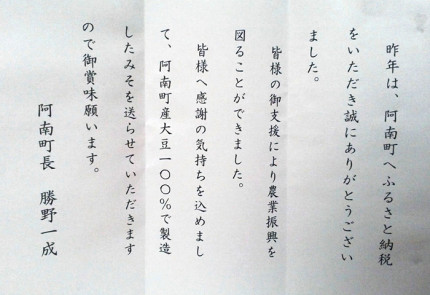 昨年は、阿南町へふるさと納税
をいただき誠にありがとうござい
ました。
皆様の御支援により農業振興を
図ることができました。
皆様へ感謝の気持ちを込めまし
て、阿南町産大豆一〇〇%で製造
したみそを送らせていただきます
ので御賞味願います。
阿南町長 勝野一成